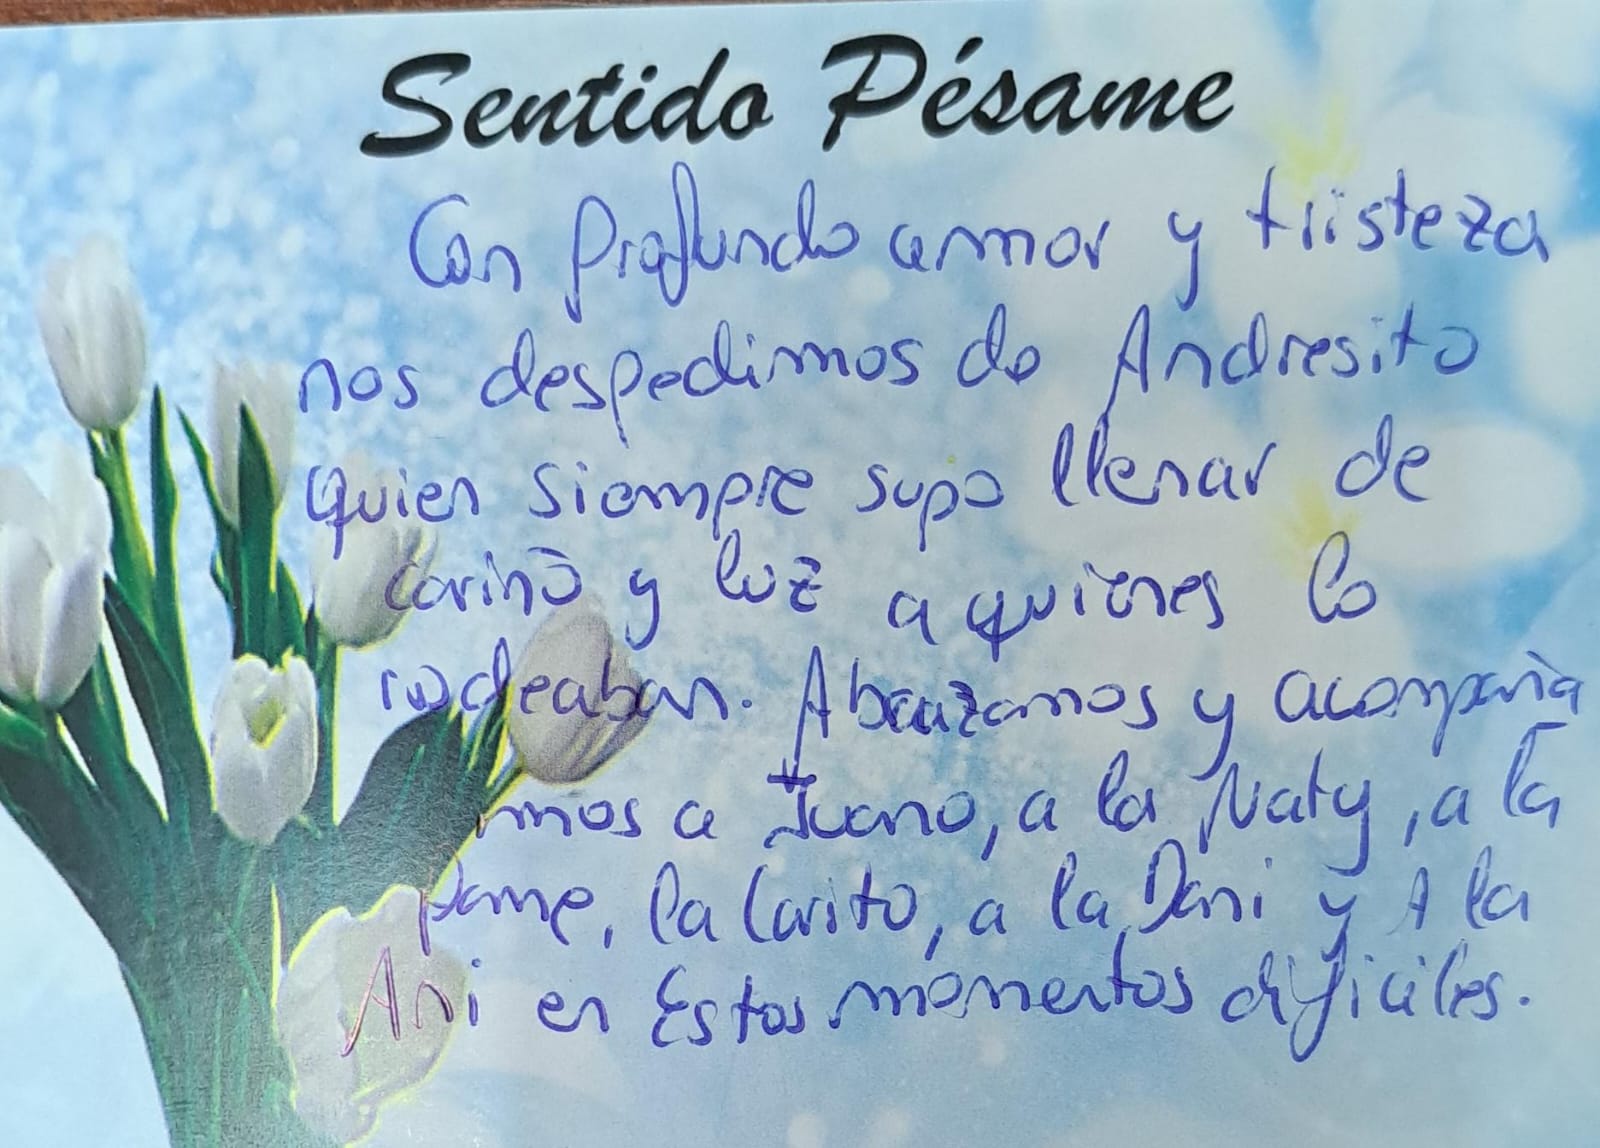 Sentido Pésame
Con Profundo amor y tristeza
nos despedimos de Andresito
quien siempre supo llenar de
cariño y luz a quienes lo
rodeaban. Abrazamos y acompaña
mos a Juano, a la Naty, a la
Pame, la Carito, a la Dani y A la
Ani en Estos momentos difíciles.